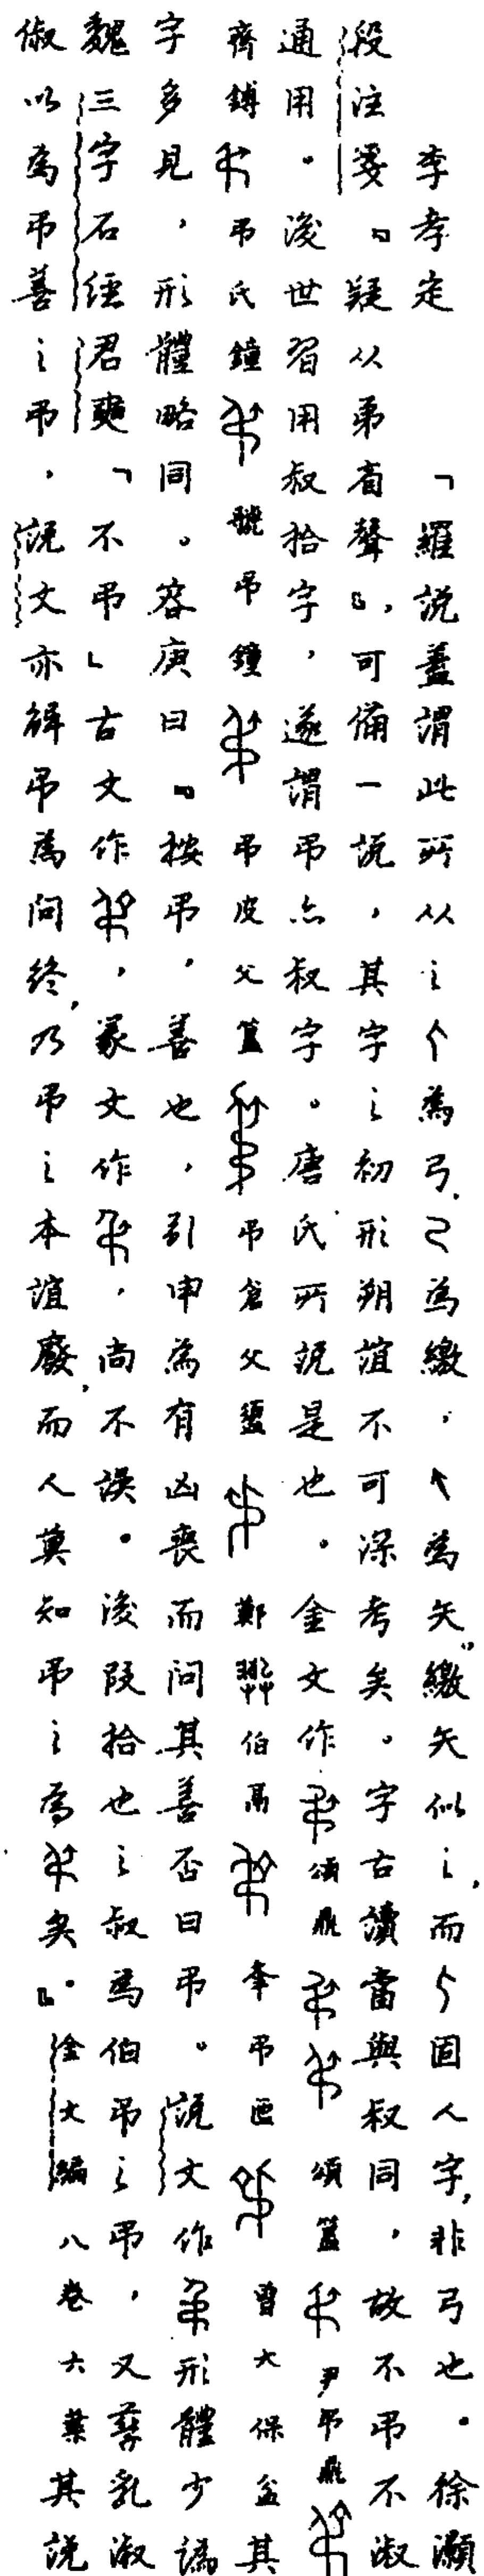 李孝定　「羅說蓋謂此所从之為弓，己為繳，為矢，繳矢似之，而固人字，非弓也。徐灝
段注箋『疑从弟省聲』，可備一說，其字之初形朔誼不可深考矣。字古讀當與叔同，故不弔不淑
通用。後世習用叔拾字，遂謂弔亦叔字。唐氏所說是也。金文作頌鼎頌簋尹弔鼎
齊鎛弔氏鐘虢弔鐘弔皮父簋弔倉父盨鄭伯鬲弔匜曾大保盆其
字多見，形體略同。容庚曰『按弔，善也，引申為有凶喪而問其善否曰弔。說文作形體少譌
魏三字石經君奭「不弔」古文作，篆文作，尚不誤。後叚拾也之叔為伯弔之弔，又孳乳淑
俶以為弔善之弔，說文亦解弔為問終，乃弔之本誼廢，而人莫知弔之為矣』。金文編八卷六葉其說